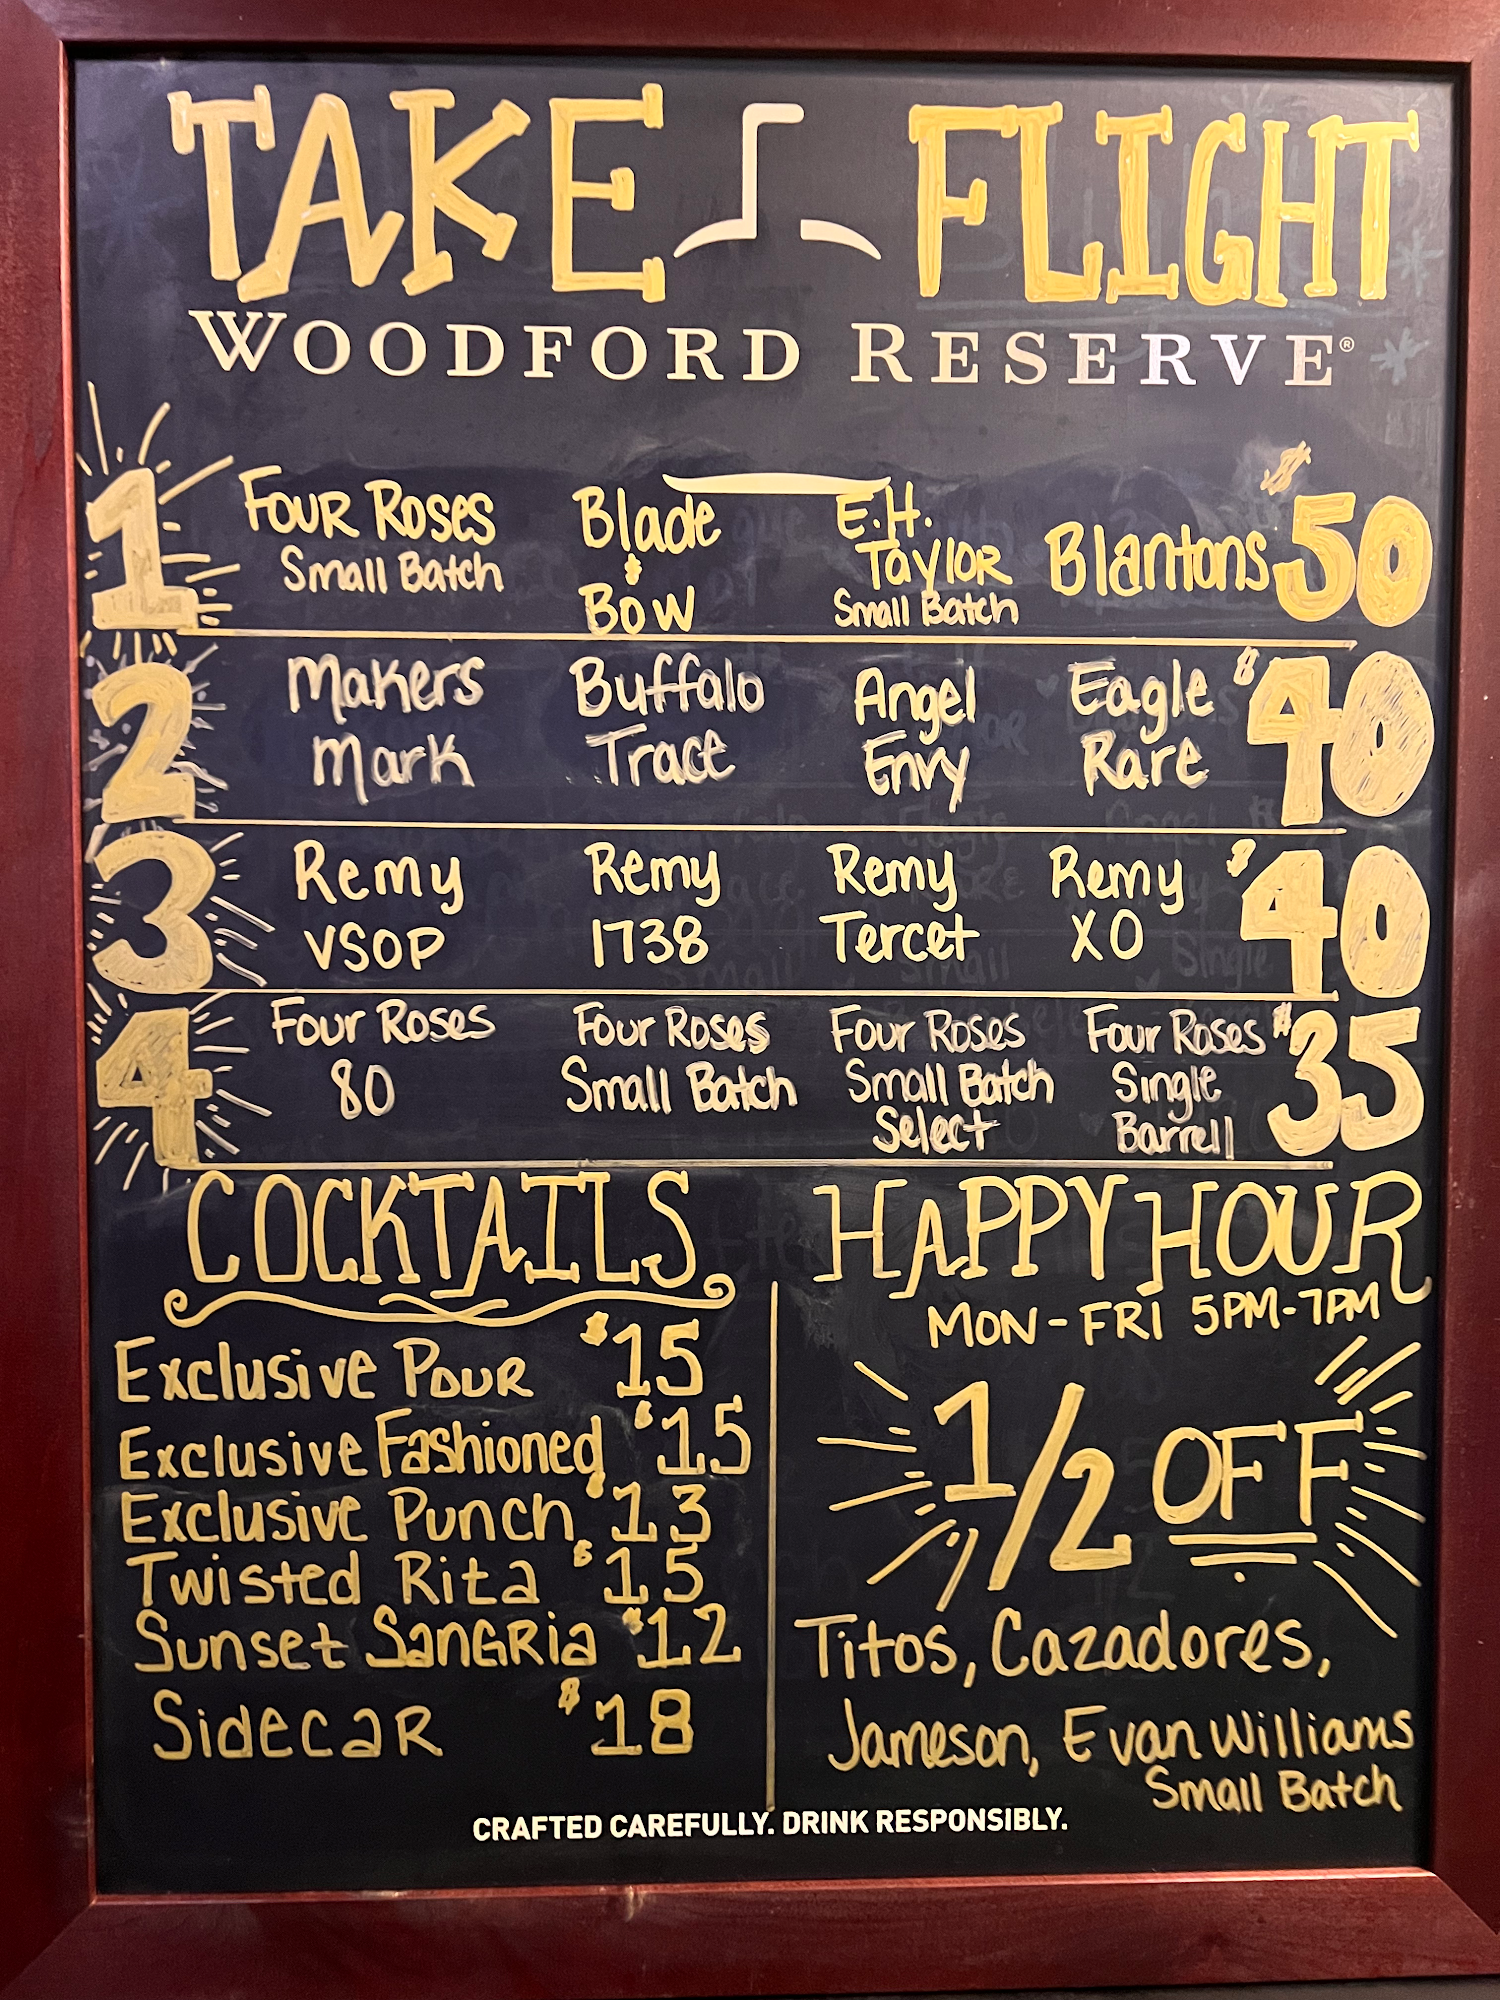 TAKE FLIGHT
WOODFORD RESERVE®
1 Four Roses Small Batch Blade & Bow E.H. Taylor Small Batch Blantons $50
2 Makers Mark Buffalo Trace Angel Envy Eagle Rare $40
3 Remy VSOP Remy 1738 Remy Tercet Remy XO $40
4 Four Roses 80 Four Roses Small Batch Four Roses Small Batch Select Four Roses Single Barrell $35
COCKTAILS
Exclusive Pour $15
Exclusive Fashioned $15
Exclusive Punch $13
Twisted Rita $15
Sunset Sangria $12
Sidecar $18
HAPPY HOUR
MON-FRI 5PM-7PM
1/2 OFF
Titos, Cazadores,
Jameson, Evan Williams
Small Batch
CRAFTED CAREFULLY. DRINK RESPONSIBLY.